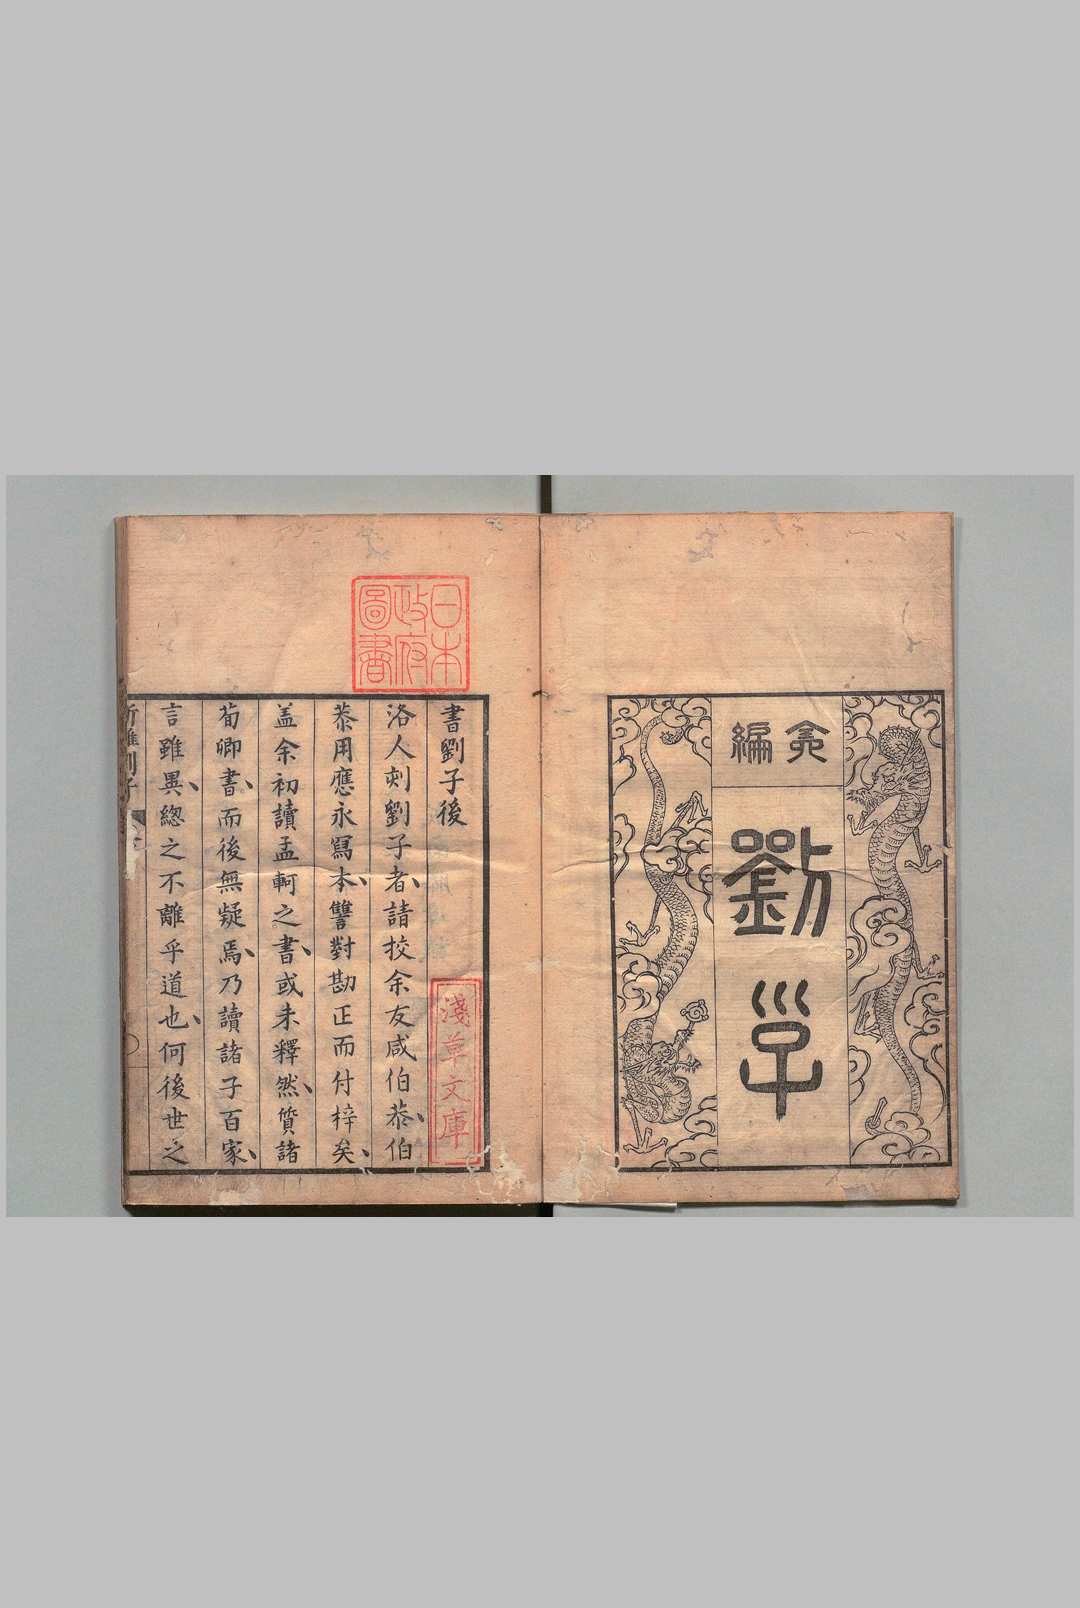 編
劉子
日本
政府
圖書
書劉子後
淺草文庫
洛人刻劉子者請挍余友咸伯恭伯
恭用應永寫本讐對勘正而付梓矣
盖余初讀孟軻之書或未釋然質諸
荀卿書而後無疑焉乃讀諸子百家
言雖異總之不離乎道也何後世之
新雕劉子